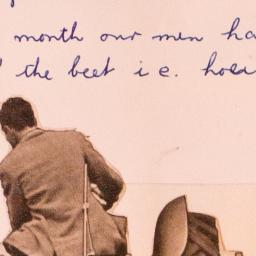 month our men ha
the beet i e. hoei